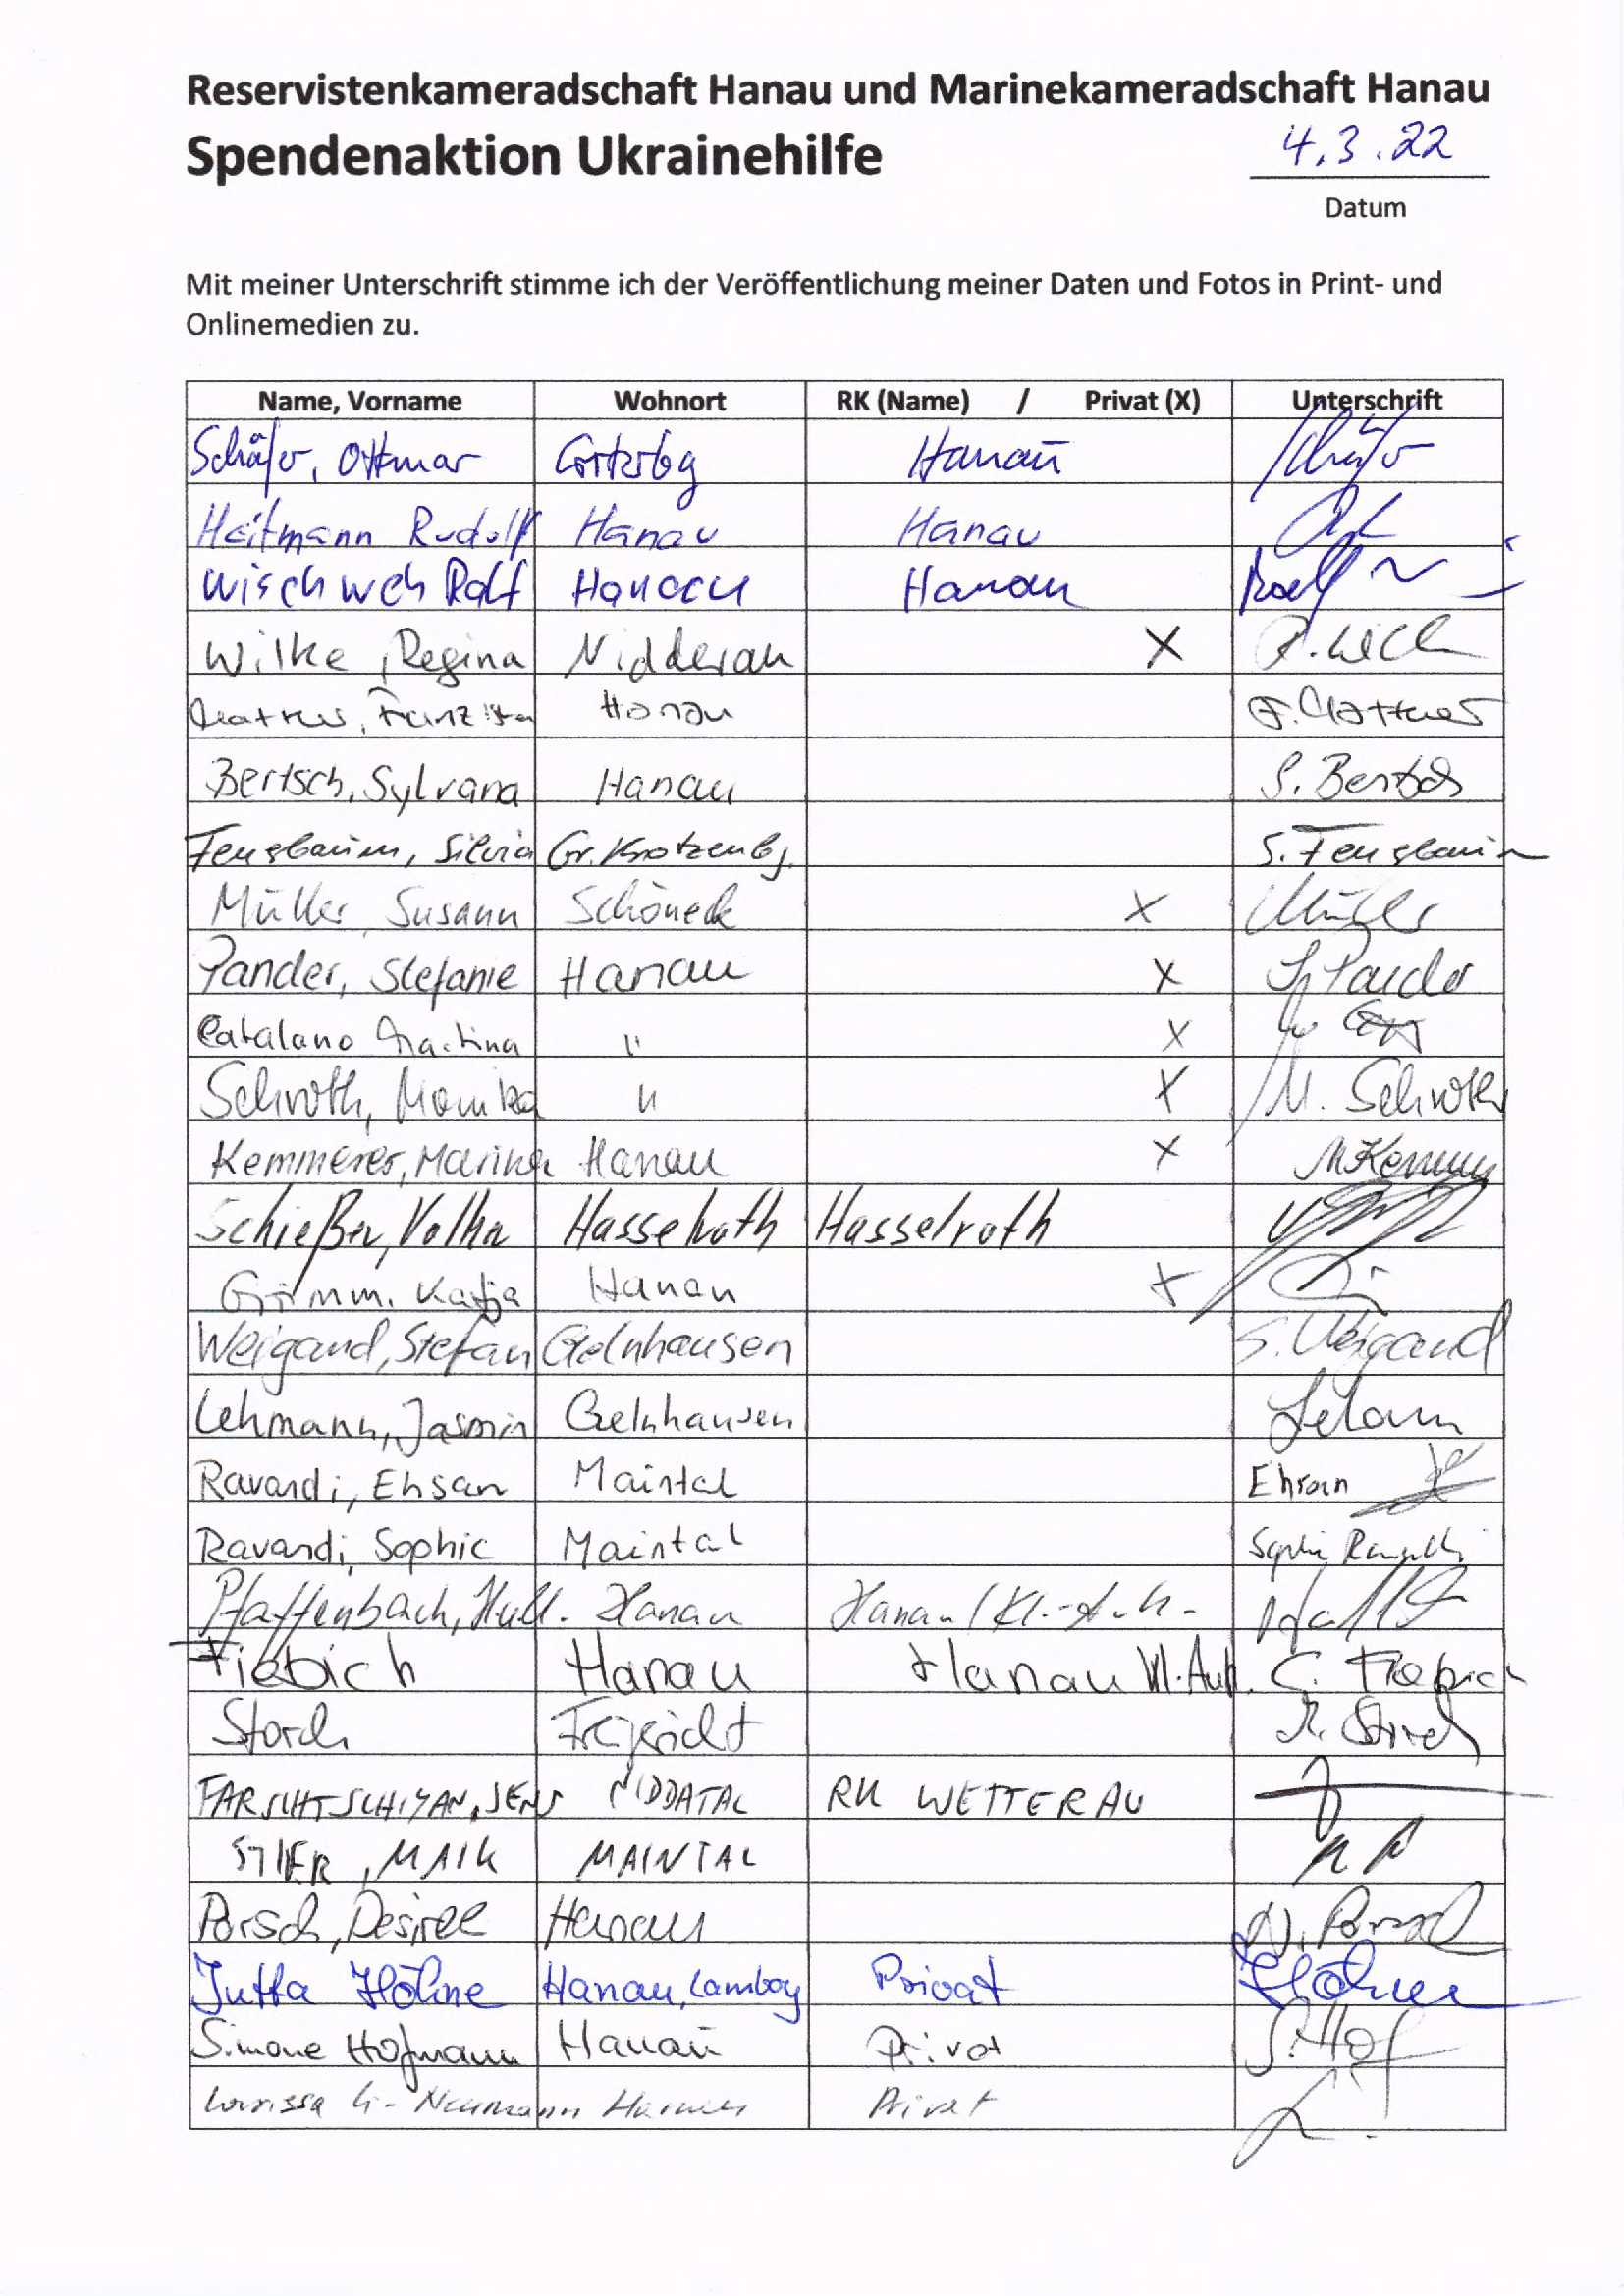 Reservistenkameradschaft Hanau und Marinekameradschaft Hanau
Spendenaktion Ukrainehilfe 4.3.22
Datum
Mit meiner Unterschrift stimme ich der Veröffentlichung meiner Daten und Fotos in Print- und
Onlinemedien zu.
Name, Vorname Wohnort RK (Name) / Privat (X) Unterschrift
Schäfer, Ottmar Hanau
Heitmann Rudolf Hanau Hanau
Wischweh Ralf Hanau Hanau
Wilke, Regina Nidderau X R. Wilk
Hanau
Bertsch, Sylvana Hanau S. Bertsch
Silvia Gr. Krotzenbg.
Müller Susann Schöneck X Müller
Pander, Stefanie Hanau X Pander
Catalano Martina " X
Schroth, Monika " X M. Schroth
Kemmerer, Marina Hanau X M Kemmerer
Schießer, Volker Hasselroth Hasselroth
Grimm, Katja Hanau X
Weigand, Stefan Gelnhausen S. Weigand
Lehmann, Jasmin Gelnhausen
Ravardi, Ehsan Maintal Ehsan
Ravardi, Sophie Maintal Sophie Ravardi
Pfaffenbach, Hanau Hanau / Kl.-Auh.
Fiebich Hanau Hanau Kl. Auh. C. Fiebich
Storch Freigericht Storch
FARSCHTSCHIYAN, JENS NIDDATAL RK WETTERAU
STIER, MAIK MAINTAL
Porsch, Desiree Hanau Porsch
Jutta Höhne Hanau, Lamboy Privat Höhne
Simone Hofmann Hanau Privat S. Hof
Larissa G-Neumann Hanau Privat